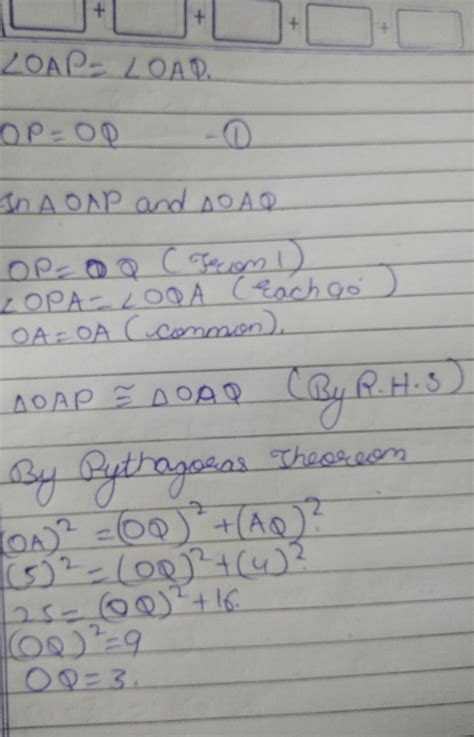 + + + +
∠OAP = ∠OAQ.
OP = OQ - ①
In △OAP and △OAQ
OP = OQ (From 1)
∠OPA = ∠OQA (Each 90°)
OA = OA (common).
△OAP ≅ △OAQ (By R.H.S)
By Pythagoras Theorem
(OA)² = (OQ)² + (AQ)²
(5)² = (OQ)² + (4)²
25 = (OQ)² + 16.
(OQ)² = 9
OQ = 3.